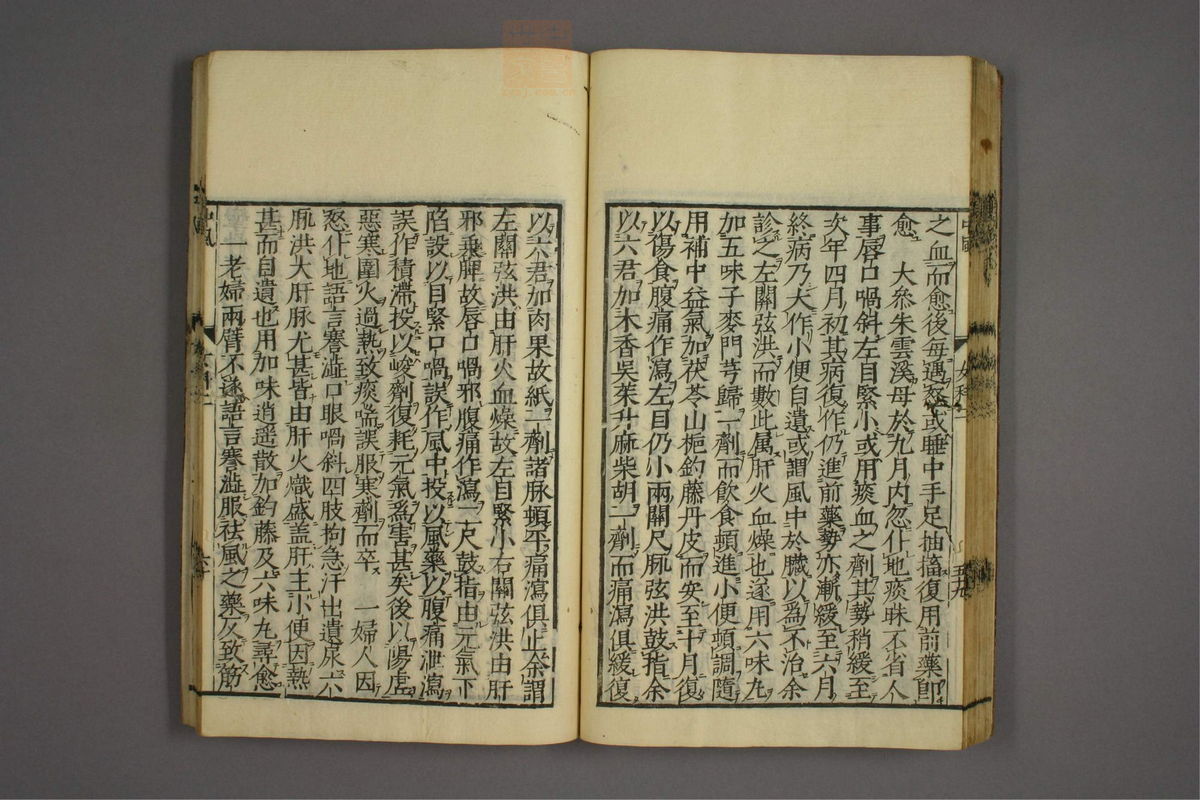 之血而愈後每遇怒或睡中手足抽搐復用前藥即
愈　大參朱雲溪母於九月內忽仆地痰昧不省人
事唇口喎斜左目緊小或用痰血之劑其勢稍緩至
次年四月初其病復作仍進前藥勢亦漸緩至六月
終病乃大作小便自遺或謂風中於臟以為不治余
診之左關弦洪而數此属肝火血燥也遂用六味丸
加五味子麥門芎歸一劑而飲食頓進小便頓調隨
用補中益氣加茯苓山梔釣藤丹皮而安至十月復
以傷食腹痛作瀉左目仍小兩關尺脉弦洪鼓指余
以六君加木香吳茱升麻柴胡一劑而痛瀉俱緩復
以六君加肉果故紙二劑諸脉頓平痛瀉俱止余謂
左關弦洪由肝火血燥故左目緊小右關弦洪由肝
邪乘脾故唇口喎邪腹痛作瀉二尺鼓指由元氣下
陷設以目緊口喎誤作風中投以風藥以腹痛泄瀉
誤作積滯投以峻劑復耗元氣為害甚矣後以陽虛
惡寒圍火過熱致痰喘誤服寒劑而卒　一婦人因
怒仆地語言謇澁口眼喎斜四肢拘急汗出遺尿六
脉洪大肝脉尤甚皆由肝火熾盛盖肝主小便因熱
甚而自遺也用加味逍遥散加釣藤及六味丸尋愈
一老婦兩臂不遂語言謇澁服祛風之藥反致筋